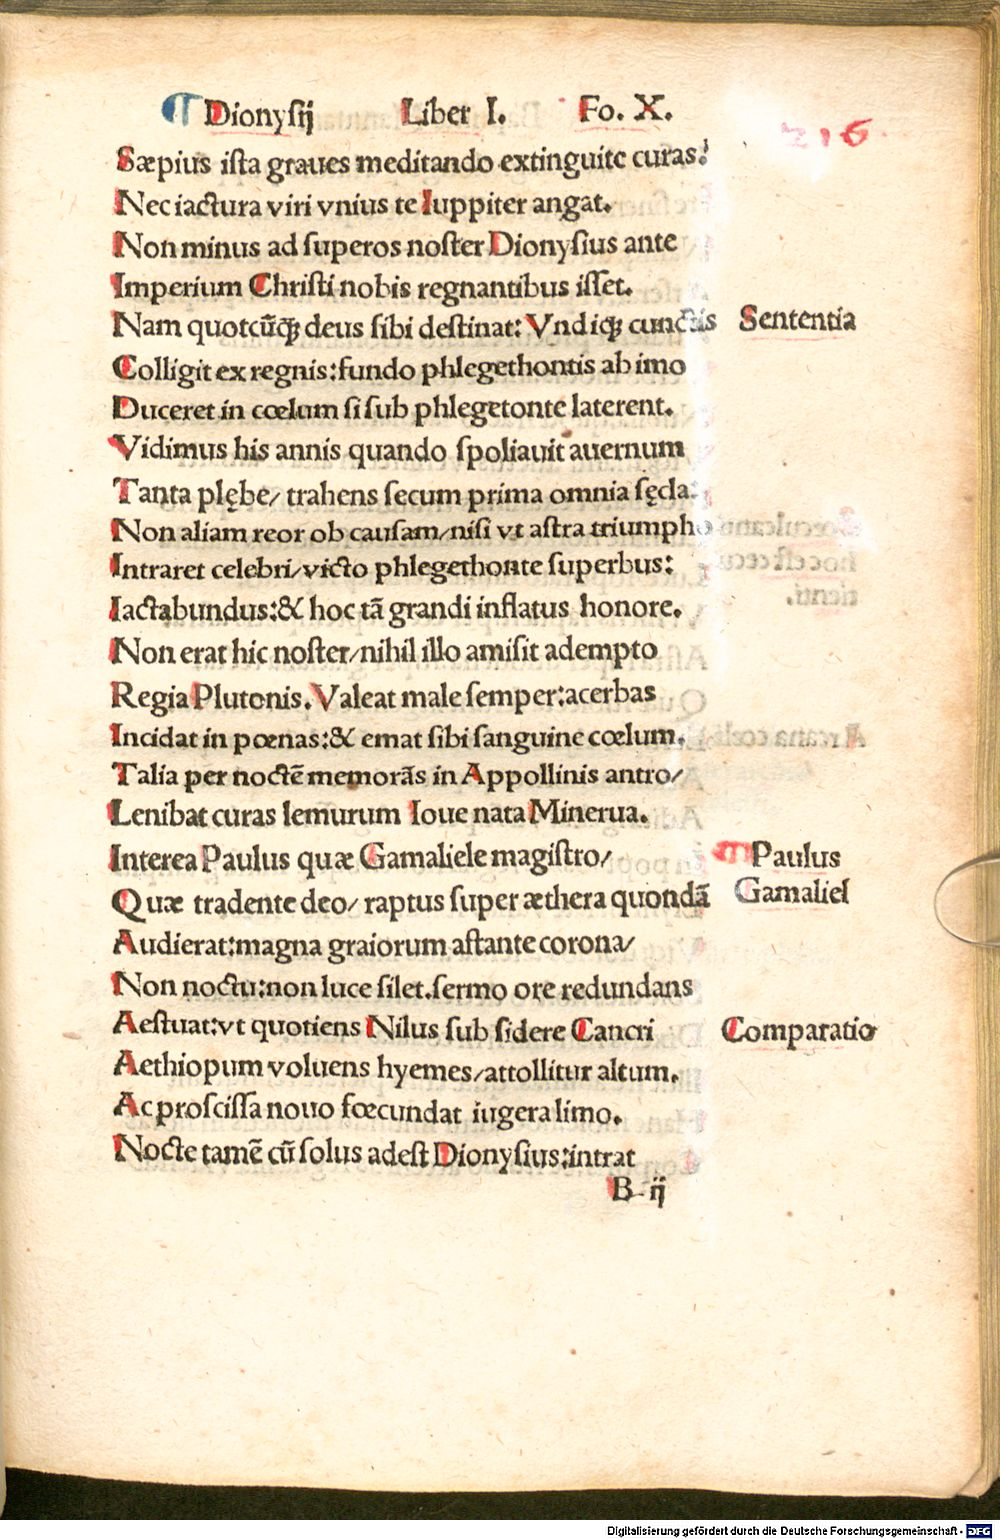 ¶ Dionysij Liber I. Fo. X.
216
Sæpius iſta graues meditando extinguite curas:
Nec iactura viri vnius te Iuppiter angat.
Non minus ad ſuperos noſter Dionyſius ante
Imperium Chriſti nobis regnantibus iſſet.
Nam quotcūq; deus ſibi deſtinat: Vndiq; cunctis
Sententia
Colligit ex regnis: fundo phlegethontis ab imo
Duceret in cœlum ſi ſub phlegetonte laterent.
Vidimus his annis quando ſpoliauit auernum
Tanta plębe/ trahens ſecum prima omnia ſęcla:
Non aliam reor ob cauſam/niſi vt aſtra triumpho
Intraret celebri/victo phlegethonte ſuperbus:
Iactabundus:& hoc tā grandi inflatus honore.
Non erat hic noſter/nihil illo amiſit adempto
Regia Plutonis. Valeat male ſemper:acerbas
Incidat in pœnas:& emat ſibi ſanguine cœlum.
Talia per noctē memorās in Appollinis antro/
Lenibat curas lemurum Ioue nata Minerua.
Interea Paulus quæ Gamaliele magiſtro/
Paulus
Quæ tradente deo/ raptus ſuper æthera quondā
Gamaliel
Audierat:magna graiorum aſtante corona/
Non noctu:non luce ſilet.ſermo ore redundans
Aeſtuat:vt quotiens Nilus ſub ſidere Cancri
Comparatio
Aethiopum voluens hyemes/attollitur altum.
Ac proſciſſa nouo fœcundat iugera limo.
Nocte tamē cū ſolus adeſt Dionyſius:intrat
B ij
Digitalisierung gefördert durch die Deutsche Forschungsgemeinschaft - DFG